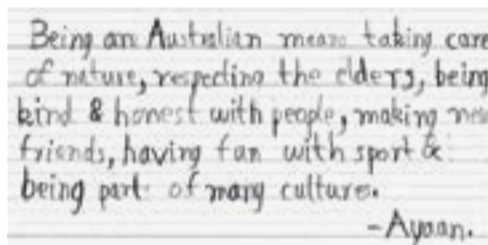 Being an Australian means taking care
of nature, respecting the elders, being
kind & honest with people, making new
friends, having fun with sport &
being part of many cultures.
-Ayaan.